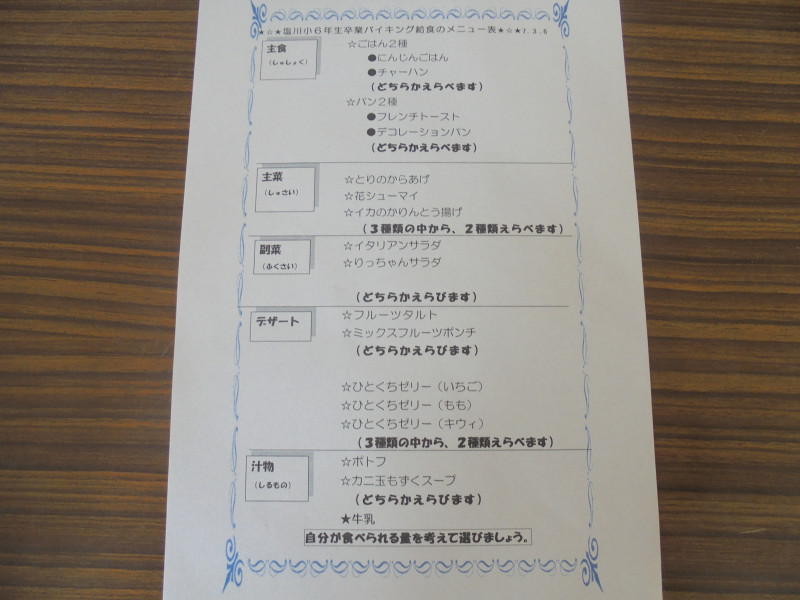 ★☆★塩川小６年生卒業バイキング給食のメニュー表★☆★７.３.６
主食
（しゅしょく）
☆ごはん２種
●にんじんごはん
●チャーハン
（どちらかえらべます）
☆パン２種
●フレンチトースト
●デコレーションパン
（どちらかえらべます）
主菜
（しゅさい）
☆とりのからあげ
☆花シューマイ
☆イカのかりんとう揚げ
（３種類の中から、２種類えらべます）
副菜
（ふくさい）
☆イタリアンサラダ
☆りっちゃんサラダ
（どちらかえらびます）
デザート
☆フルーツタルト
☆ミックスフルーツポンチ
（どちらかえらびます）
☆ひとくちゼリー（いちご）
☆ひとくちゼリー（もも）
☆ひとくちゼリー（キウィ）
（３種類の中から、２種類えらべます）
汁物
（しるもの）
☆ポトフ
☆カニ玉もずくスープ
（どちらかえらびます）
★牛乳
自分が食べられる量を考えて選びましょう。